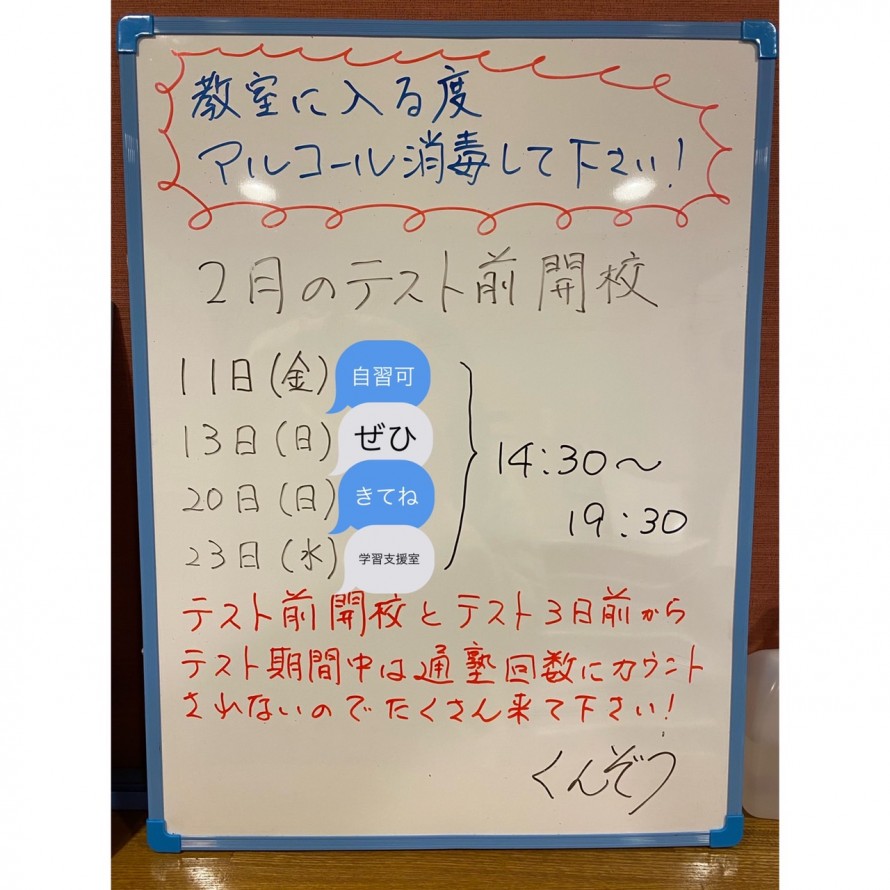 教室に入る度
アルコール消毒して下さい!
2月のテスト前開校
11日(金) 自習可
13日(日) ぜひ
20日(日) きてね
23日(水) 学習支援室
14:30〜
19:30
テスト前開校とテスト3日前から
テスト期間中は通塾回数にカウント
されないのでたくさん来て下さい!
くんぞう